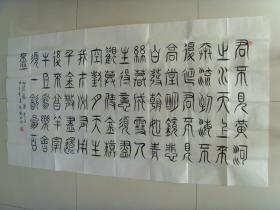 君不見黃河
之水天上來
奔流到海不
復回君不見
高堂明鏡悲
白髮朝如青
絲暮成雪人
生得意須盡
歡莫使金樽
空對月天生
我材必有用
千金散盡還
復來烹羊宰
牛且為樂會
須一飲三百
杯